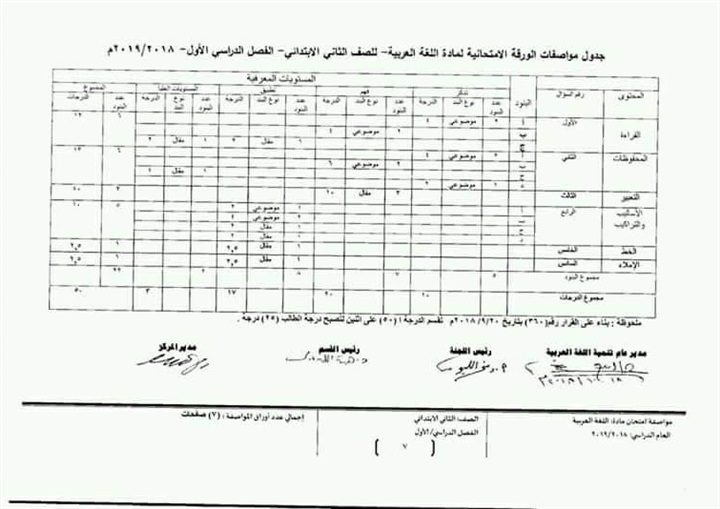 جدول مواصفات الورقة الامتحانية لمادة اللغة العربية – للصف الثاني الابتدائي – الفصل الدراسي الأول – ٢٠١٩/٢٠١٨م
المحتوى رقم السؤال البنود المستويات المعرفية المجموع
تذكر فهم تطبيق المستويات العليا
عدد البنود نوع البند الدرجة عدد البنود نوع البند الدرجة عدد البنود نوع البند الدرجة عدد البنود نوع البند الدرجة عدد البنود الدرجات
القراءة الأول أ ٢ موضوعي ٤
ب ٢ موضوعي ٤
ج ١ مقال ٢ ١ مقال ٢ ٦ ١٢
المحفوظات الثاني أ ٢ موضوعي ٤
ب ٢ موضوعي ٦
ج ١ مقال ١
د ١ موضوعي ٢ ٦
التعبير الثالث ٣ مقال ١٠ ٣
الأساليب والتراكيب الرابع أ ١ موضوعي ٢ ٥ ١٠
ب ١ موضوعي
ج ١ مقال ٢
د ١ مقال
الخط الخامس ١ مقال ٢,٥ ١ ٢,٥
الإملاء السادس ١ مقال ٢,٥ ١ ٢,٥
مجموع البنود ٥ ٧ ٨ ٢ ٢٢
مجموع الدرجات ١٠ ٢٠ ١٧ ٣ ٥٠
ملحوظة : بناء على القرار رقم (٣٦٠) بتاريخ ٢٠١٨/٩/٢٠م تقسم الدرجة (٥٠) على اثنين لتصبح درجة الطالب (٢٥) درجة .
مدير عام تنمية اللغة العربية رئيس اللجنة رئيس القسم مدير المركز
مواصفة امتحان مادة: اللغة العربية الصف: الثاني الابتدائي إجمالي عدد أوراق المواصفة : (٧) صفحات
العام الدراسي: ٢٠١٩/٢٠١٨ الفصل الدراسي/الأول
( ٧ )